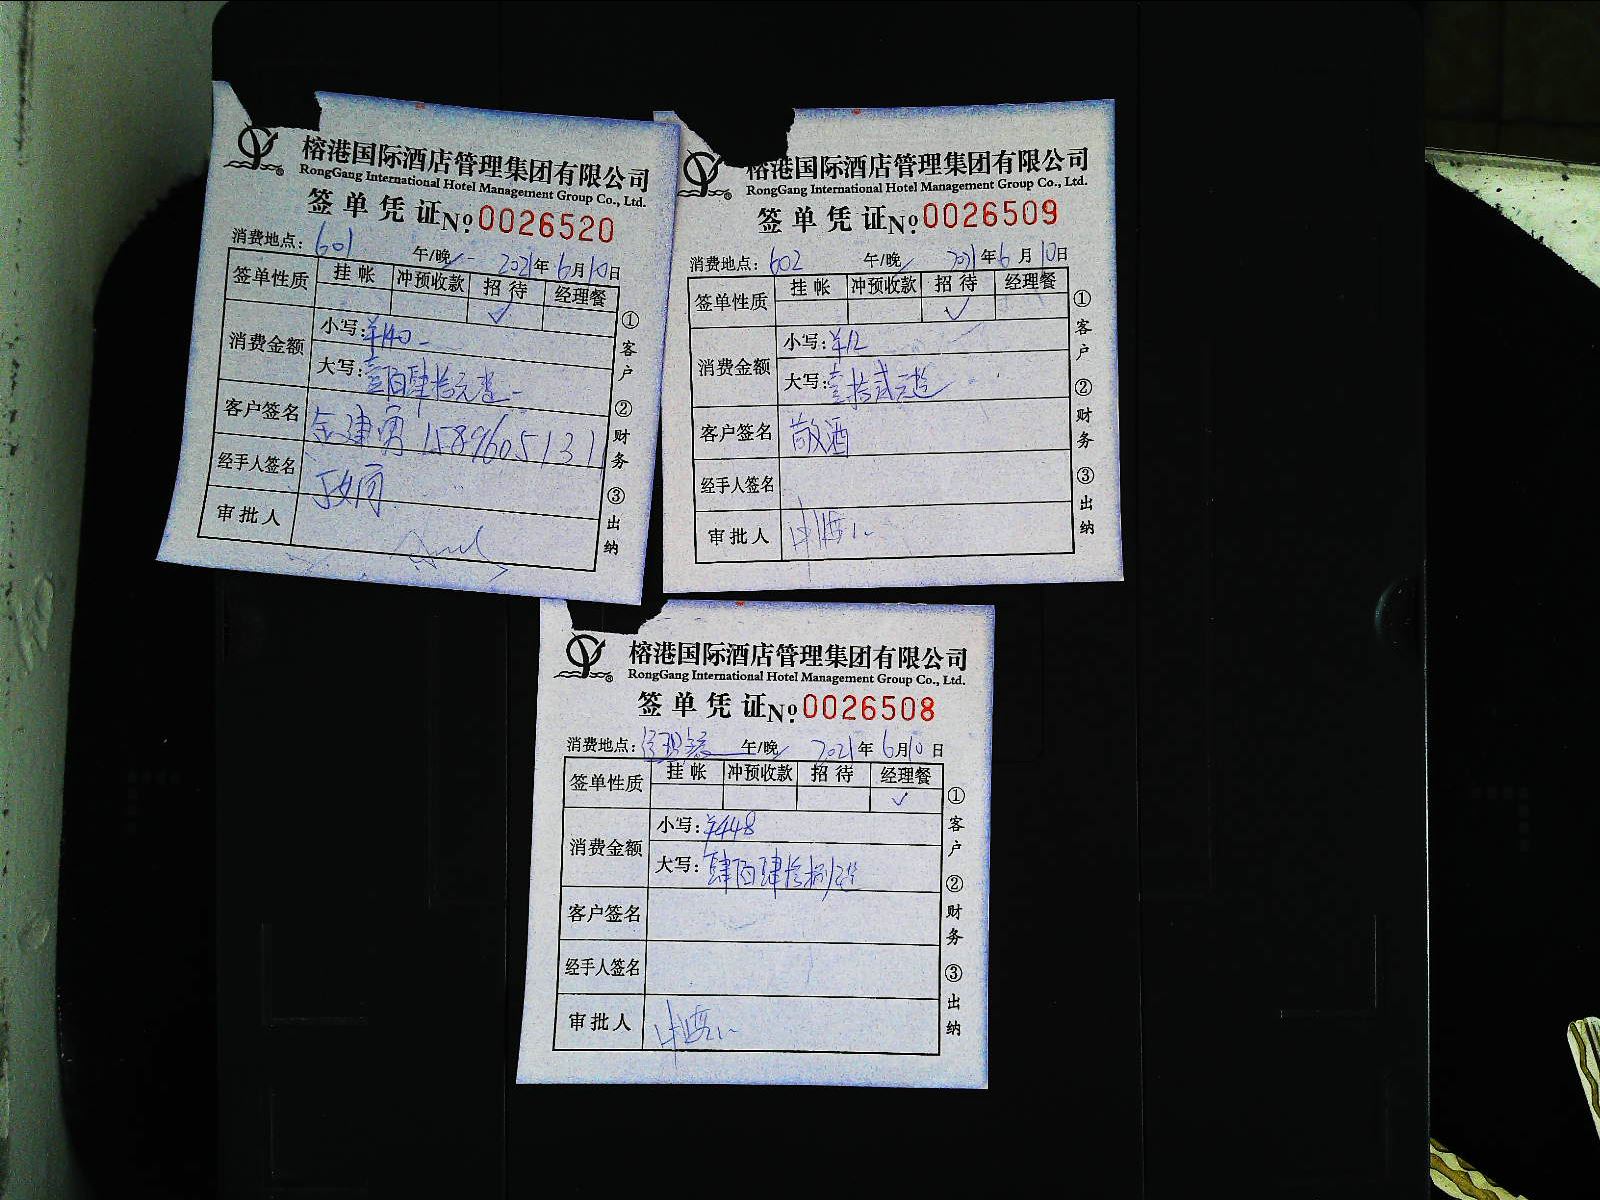 榕港国际酒店管理集团有限公司
RongGang International Hotel Management Group Co., Ltd.
签单凭证 №.0026520
消费地点：601 午/晚 2021年6月10日
签单性质 挂帐 冲预收款 招待 经理餐
✓
消费金额 小写：¥140
大写：壹佰肆拾元整
客户签名 建 15896605131
经手人签名 丁
审批人
①客户 ②财务 ③出纳
榕港国际酒店管理集团有限公司
RongGang International Hotel Management Group Co., Ltd.
签单凭证 №.0026509
消费地点：602 午/晚 2021年6月10日
签单性质 挂帐 冲预收款 招待 经理餐
✓
消费金额 小写：¥12
大写：壹拾贰元整
客户签名 敬酒
经手人签名
审批人
①客户 ②财务 ③出纳
榕港国际酒店管理集团有限公司
RongGang International Hotel Management Group Co., Ltd.
签单凭证 №.0026508
消费地点：经理餐 午/晚 2021年6月10日
签单性质 挂帐 冲预收款 招待 经理餐
✓
消费金额 小写：¥448
大写：肆佰肆拾捌元整
客户签名
经手人签名
审批人
①客户 ②财务 ③出纳